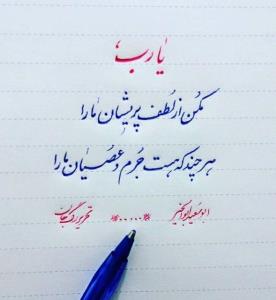 یا رب
مکن از لطف پریشان ما را
هر چند که هست جرم و عصیان ما را
ابوسعید ابوالخیر
تحریر